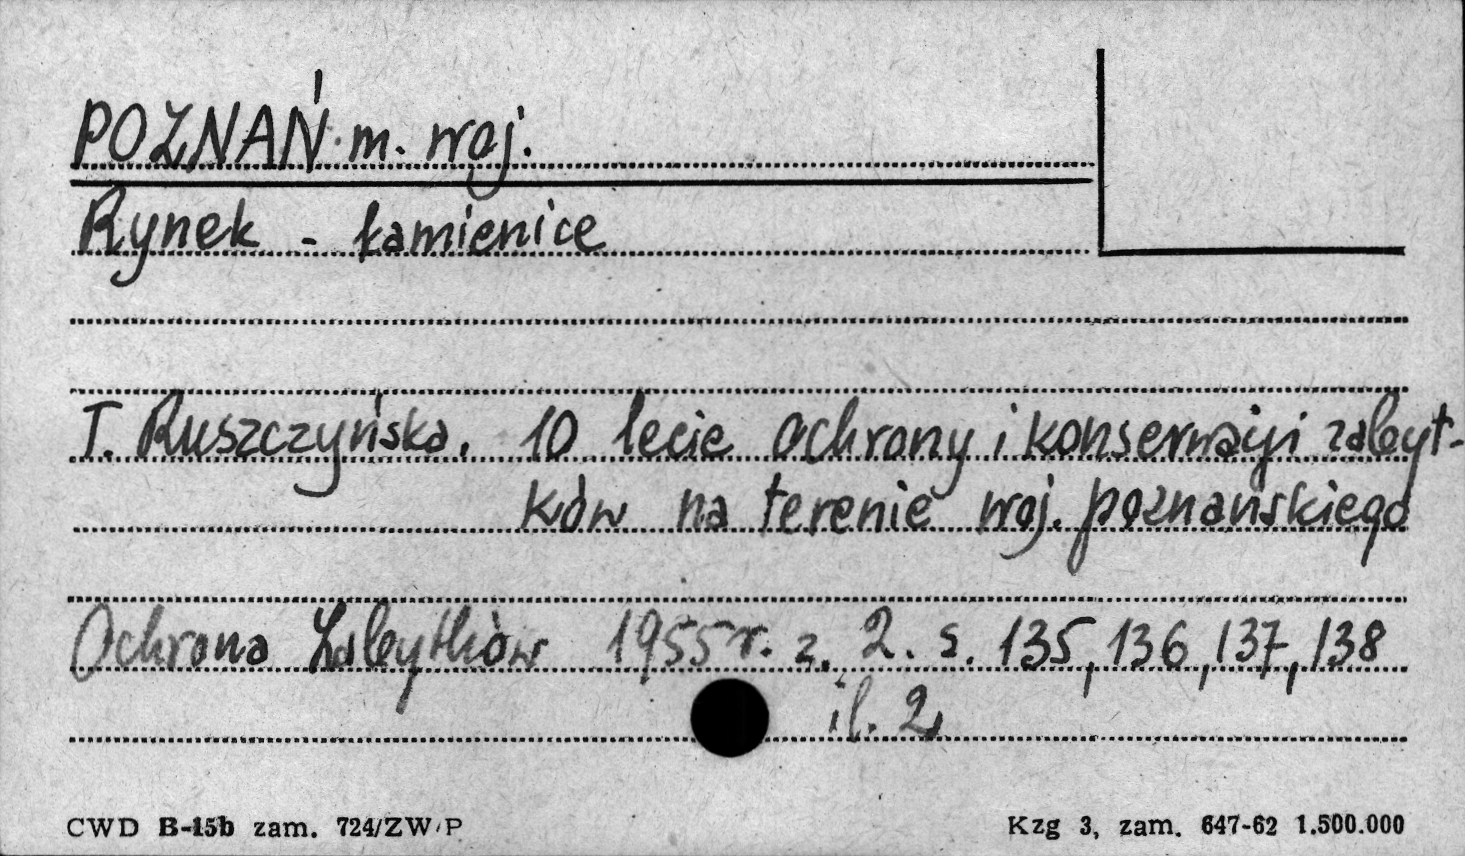 POZNAŃ m. woj.
Rynek - kamienice
T. Ruszczyńska. 10 lecie ochrony i konserwacji zabyt-
ków na terenie woj. poznańskiego
Ochrona Zabytków 1955 r. z. 2. s. 135, 136, 137, 138
il. 2,
CWD B-15b zam. 724/ZW/P
Kzg 3, zam. 647-62 1.500.000